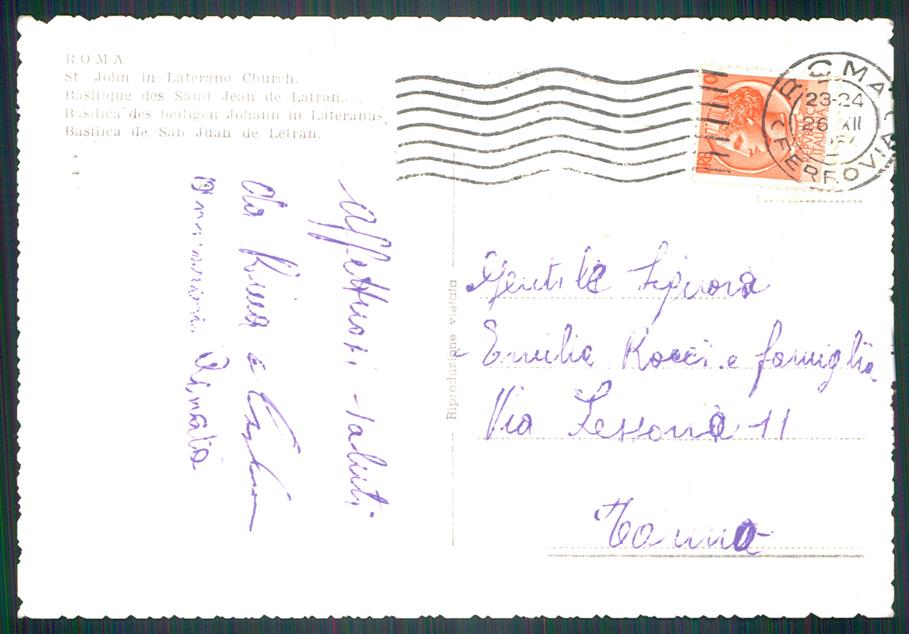 ROMA
St. John in Laterano Church.
Basilique des Saint Jean de Latran.
Basilica des heiligen Johann in Lateranas
Basilica de San Juan de Letrán.
ROMA
FERROVIA
23-24
26 XII
ITALIA
Riproduzione vietata
Affettuosi saluti
da Rina e
Renato
Gentile Signora
Emilia Rocci e famiglia
Via Lessona 11